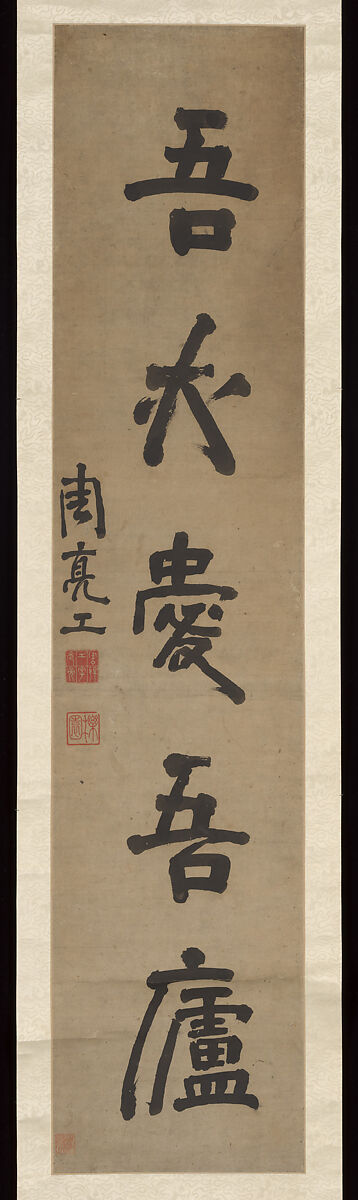 吾亦愛吾廬
周亮工
櫟園